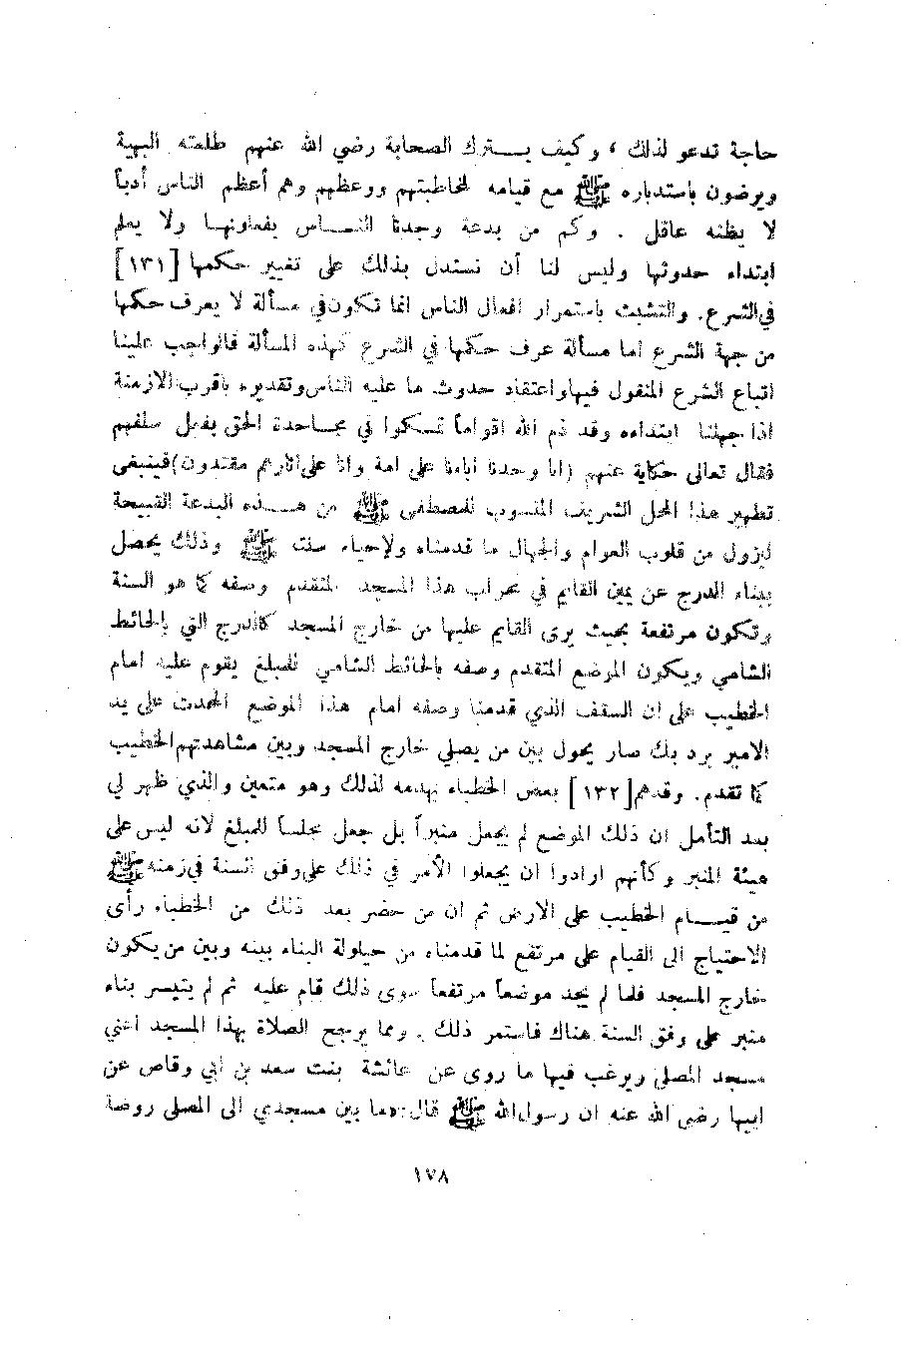 حاجة تدعو لذلك ، وكيف يـــترك الصحابة رضي الله عنهم طلعته البهية
ويرضون باستدباره ﷺ مع قيامه لمخاطبتهم ووعظهم وهم أعظم الناس أدباً
لا يظنه عاقل . وكم من بدعة وجدنا النـــاس يفعلونهـا ولا يعلم
ابتداء حدوثها وليس لنا أن نستدل بذلك على تغيير حكمها [١٣١]
في الشرع. والتشبث باستمرار افعال الناس انما تكون في مسألة لا يعرف حكمها
من جهة الشرع اما مسألة عرف حكمها في الشرع كهذه المسألة فالواجب علينا
اتباع الشرع المنقول فيها واعتقاد حدوث ما عليه الناس وتقديره باقرب الازمنة
اذا جهلنا ابتداءه وقد ذم الله اقواماً تمسكوا في مجـاحدة الحق بفعل سلفهم
فقال تعالى حكاية عنهم (انا وجدنا اباءنا على امة وانا على اثارهم مقتدون) فينبغى
تطهير هذا المحل الشريف المنسوب للمصطفى ﷺ من هـــذه البدعة القبيحة
ليزول من قلوب العوام والجهال ما قدمناه ولإحياء سنته ﷺ وذلك يحصل
ببناء الدرج عن يمين القايم في محراب هذا المسجد المتقدم وصفه كما هو السنة
وتكون مرتفعة بحيث يرى القايم عليها من خارج المسجد كالدرج التي بالحائط
الشامي ويكون الموضع المتقدم وصفه بالحائط الشامي للمبلغ يقوم عليه امام
الخطيب على ان السقف الذي قدمنا وصفه امام هذا الموضع المحدث على يد
الامير برد بك صار يحول بين من يصلي خارج المسجد وبين مشاهدتهم الخطيب
كما تقدم. وقد هم [١٣٢] بعض الخطباء بهدمه لذلك وهو متعين والذي ظهر لي
بعد التأمل ان ذلك الموضع لم يجعل منبراً بل جعل مجلساً للمبلغ لانه ليس على
هيئة المنبر وكأنهم ارادوا ان يجعلوا الأمر في ذلك على وفق السنة في زمنه ﷺ
من قيـــام الخطيب على الارض ثم ان من حضر بعد ذلك من الخطباء رأى
الاحتياج الى القيام على مرتفع لما قدمناه من حيلولة البناء بينه وبين من يكون
خارج المسجد فلما لم يجد موضعاً مرتفعاً سوى ذلك قام عليه ثم لم يتيسر بناء
منبر على وفق السنة هناك فاستمر ذلك . ومما يرجح الصلاة بهذا المسجد اعني
مسجد المصلى ويرغب فيها ما روى عن عائشة بنت سعد بن ابي وقاص عن
ابيها رضي الله عنه ان رسول الله ﷺ قال: «ما بين مسجدي الى المصلى روضة
١٧٨